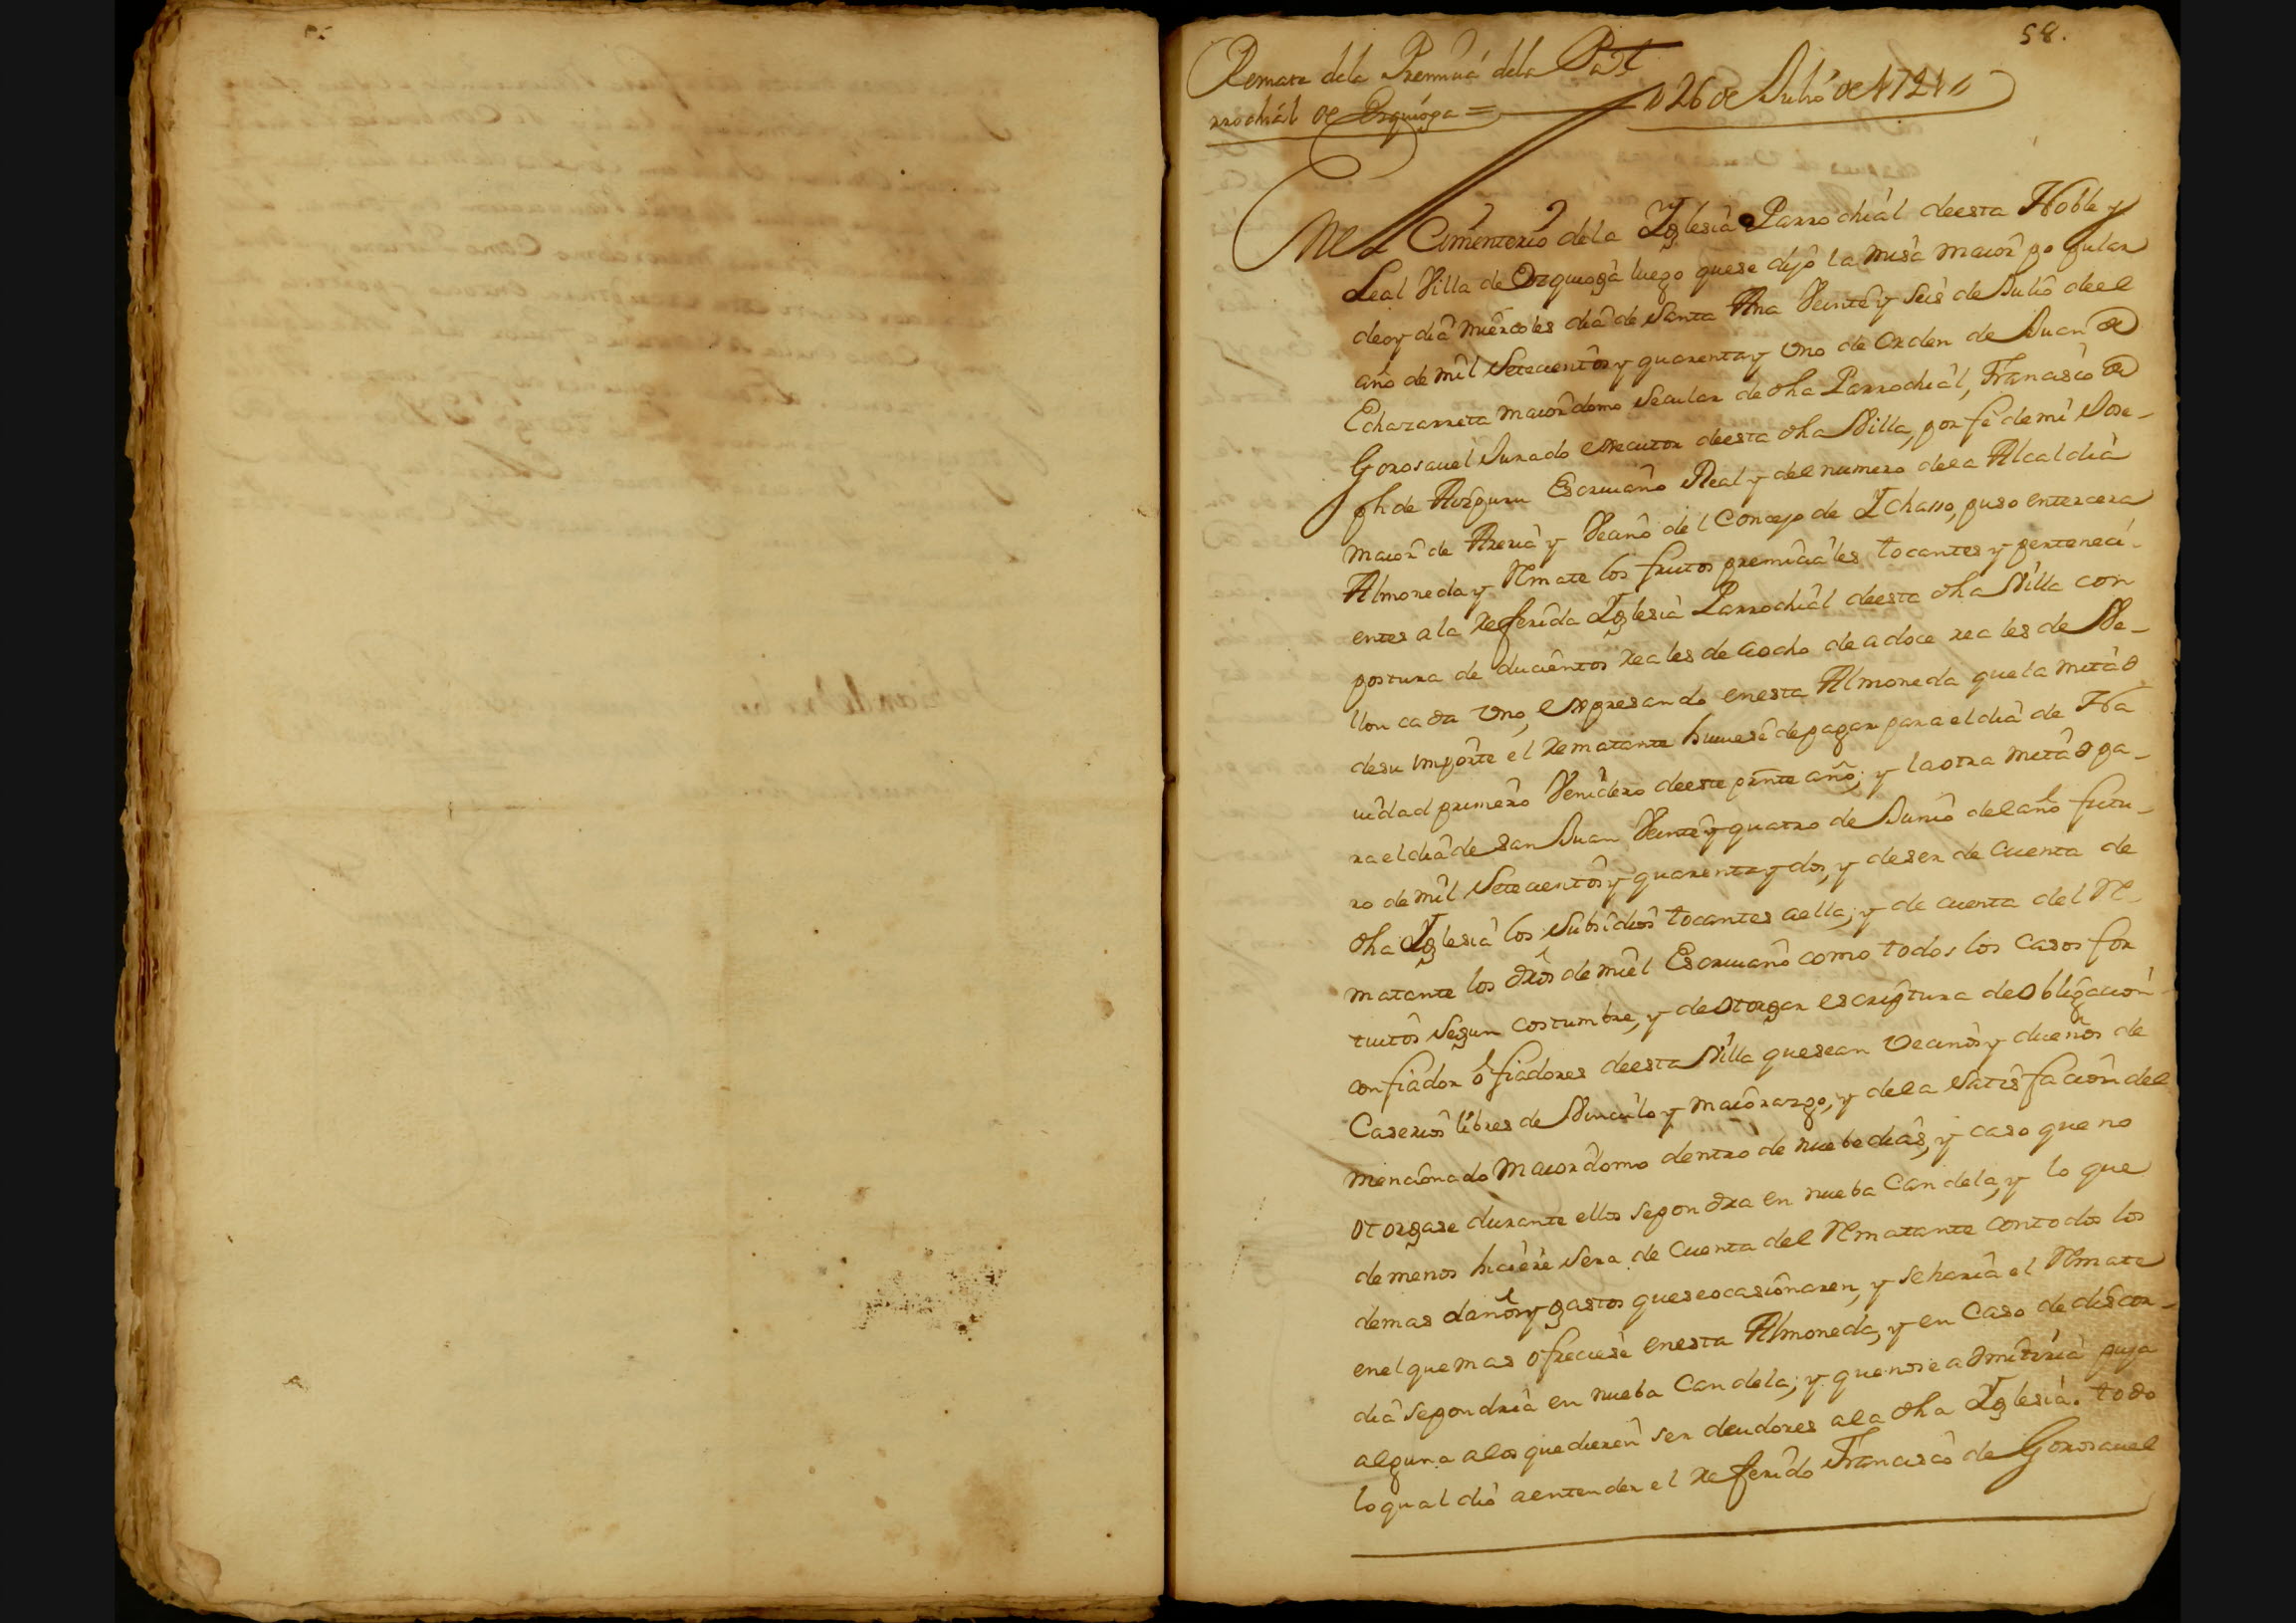 58.
Remate dela Premiciá dela Pa
rrochiál de Ezquioga =
26 de Julio de 1741
En el Cimenterio dela Yglesia Parrochiál deesta Noble y
Leal Villa de Ezquioga luego quese dijo la misa maior popular
deoy diâ miercoles diâ de Santa Ana Veinte y Seis de Julio deel
año de mil Setecientos y quarenta y Uno de Orden de Juan de
Echazarreta maiordomo Secular de dha Parrochiál, Francisco de
Gorosauel Jurado executor deesta dha Villa, por fe de mi Jose-
ph de Aizpuru Escriuano Real y del numero dela Alcaldia
maior de Areria y Vecino del Concejo de Ychasso, puso entercera
Almoneda y Remate los frutos premiciales tocantes y perteneci-
entes a la referida Yglesia Parrochiál deesta dha Villa con
postura de ducientos reales de aocho de adoce reales de Ve-
llon cada Uno, expresando enesta Almoneda que la mitad
desu importe el rematante huuese depagar para el diâ de Na
uidad primero Venidero deeste prnte año; y laotra mitad pa-
ra el diâ de San Juan Veinte y quatro de Junio del año futu-
ro de mil Setecientos y quarenta y dos, y deser de Cuenta de
dha Yglesia los Subsidios tocantes aella; y de cuenta del Re-
matante los dros de miel Escriuano como todos los casos for
tuitos Segun costumbre, y deotorgar escriptura deobligacion
confiador ó fiadores deesta Villa quesean Vecinos y dueños de
Caserios libres de Vinculo y maiorazgo, y dela Satisfacion del
mencionado Maiordomo dentro de nuebe diâs, y caso que no
otorgase durante ellos sepondra en nueba Candela, y lo que
de menos hiciere Sera de Cuenta del Rematante contodos los
demas daños y gastos queseocasionaren, y seharia el Remate
enel que mas ofreciese enesta Almoneda, y en Caso de discor-
diâ sepondria en nueba Candela; y que nose admitiria puja
alguna alos quedieren ser deudores ala dha Yglesia. todo
loqual dió aentender el referido Francisco de Gorosauel